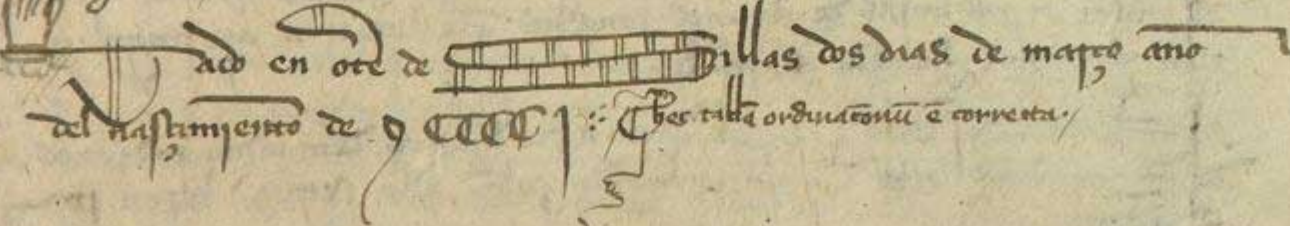 Dado en ote de Sillas dos dias de março ano
del nasçimiento de CCCC I hec tabla ordinaconu e correcta